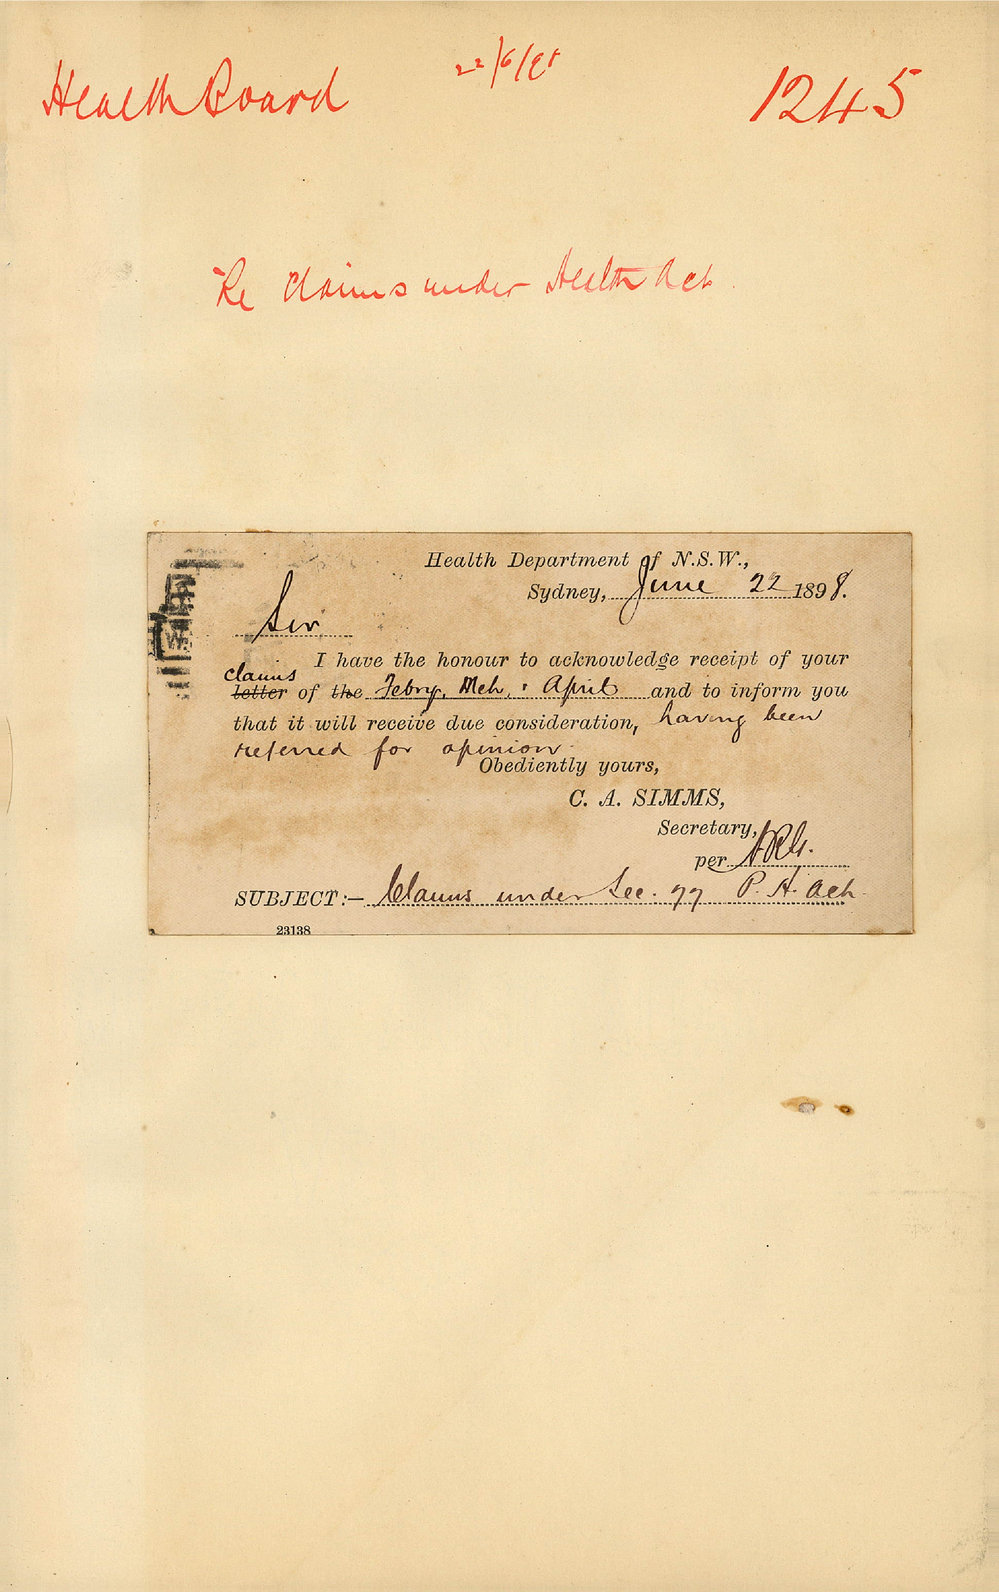 Health Board
22/6/98
1245
Re Claims under Health Act
Health Department of N.S.W.,
Sydney, June 22 1898.
Sir
I have the honour to acknowledge receipt of your
claims
letter of the Febry, Mch, & April and to inform you
that it will receive due consideration, having been
referred for opinion
Obediently yours,
C. A. SIMMS,
Secretary,
per
SUBJECT:— Claims under Sec. 77 P. H. Act.
23138